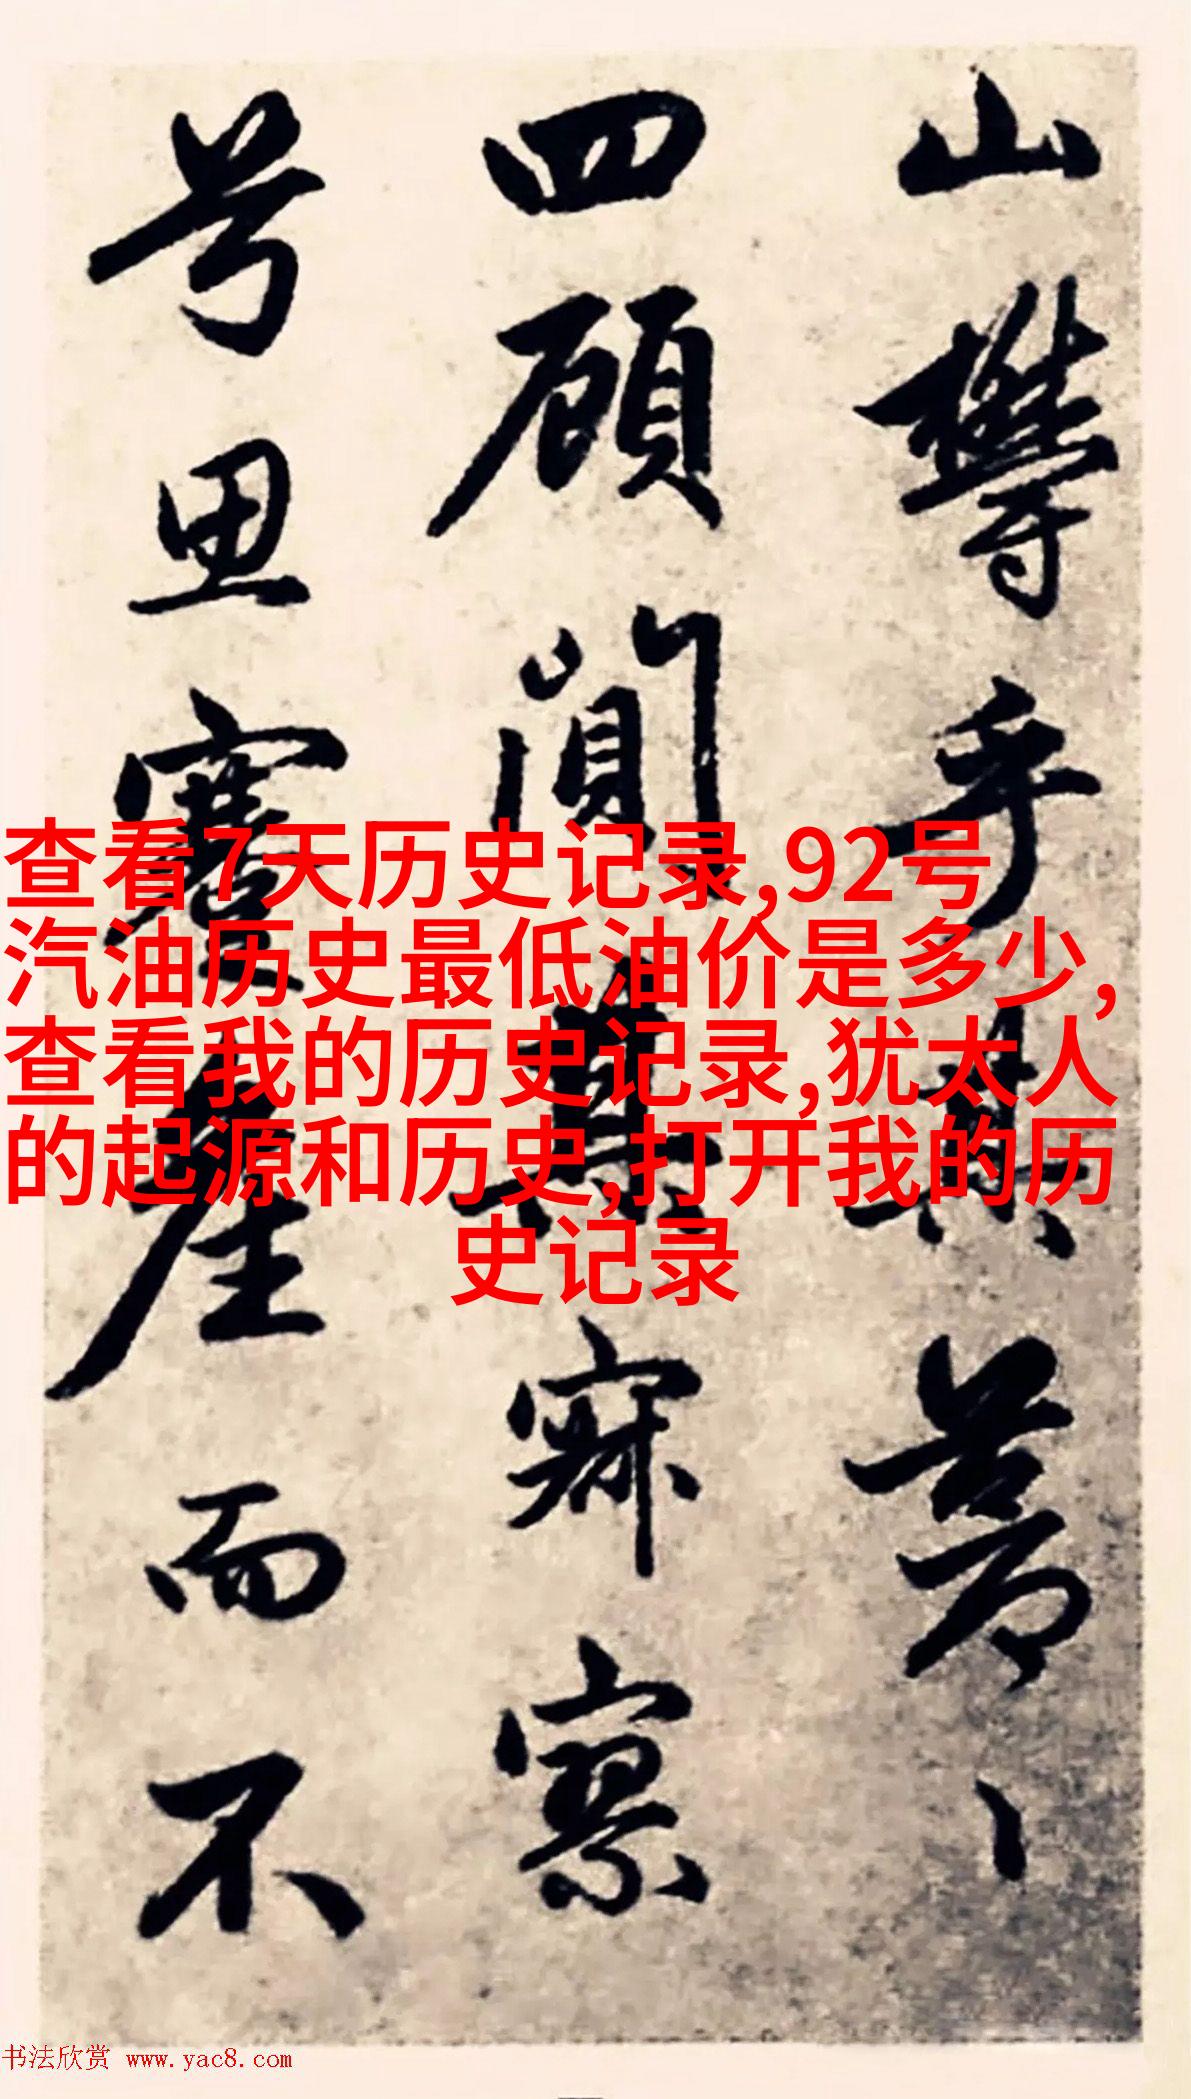 山欝乎其蒼〻
四顧闃其寂寥
兮思蹇產而不
查看7天历史记录,92号
汽油历史最低油价是多少,
查看我的历史记录,犹太人
的起源和历史,打开我的历
史记录
书法欣赏 www.yac8.com